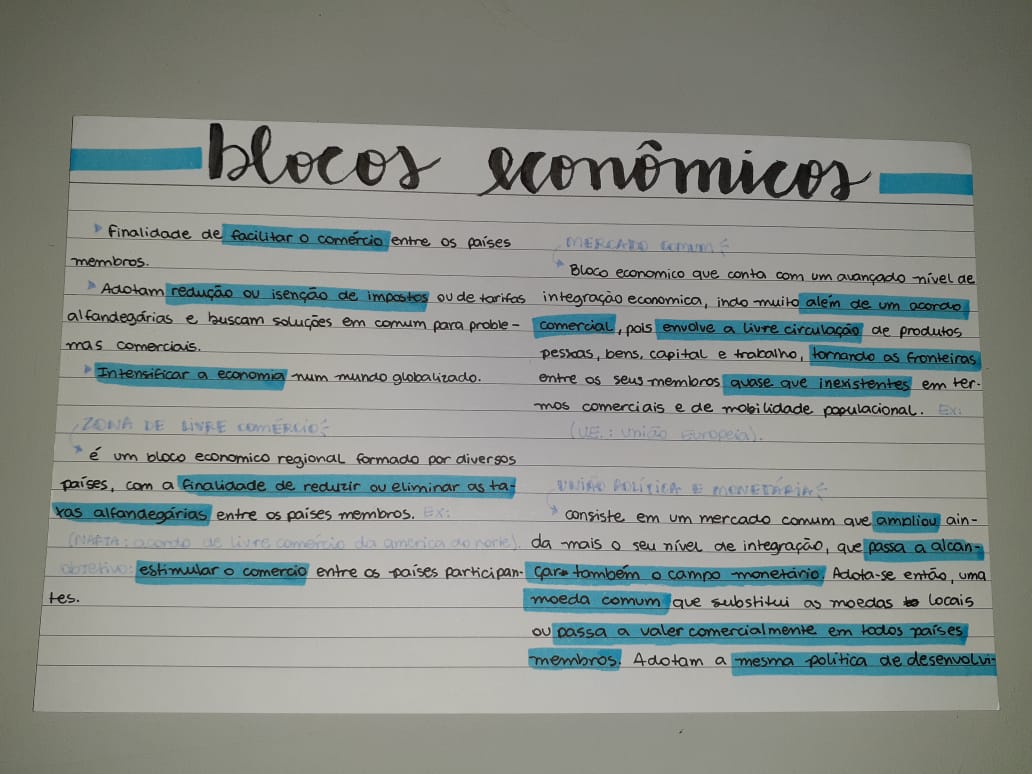 blocos econômicos
finalidade de facilitar o comércio entre os países
membros.
Adotam redução ou isenção de impostos ou de tarifas
alfandegárias e buscam soluções em comum para proble-
mas comerciais.
Intensificar a economia num mundo globalizado.
ZONA DE LIVRE COMÉRCIO:
é um bloco economico regional formado por diversos
países, com a finalidade de reduzir ou eliminar as ta-
xas alfandegárias entre os países membros. Ex:
(NAFTA: acordo de livre comércio da america do norte).
objetivo: estimular o comercio entre os países participan-
tes.
MERCADO COMUM:
Bloco economico que conta com um avançado nível de
integração economica, indo muito além de um acordo
comercial, pois envolve a livre circulação de produtos
pessoas, bens, capital e trabalho, tornando as fronteiras
entre os seus membros quase que inexistentes em ter-
mos comerciais e de mobilidade populacional. Ex:
(U.E.: união Europeia).
UNIÃO POLÍTICA E MONETÁRIA:
consiste em um mercado comum que ampliou ain-
da mais o seu nível de integração, que passa a alcan-
çar também o campo monetário. Adota-se então, uma
moeda comum que substitui as moedas locais
ou passa a valer comercialmente em todos países
membros. Adotam a mesma política de desenvolvi-